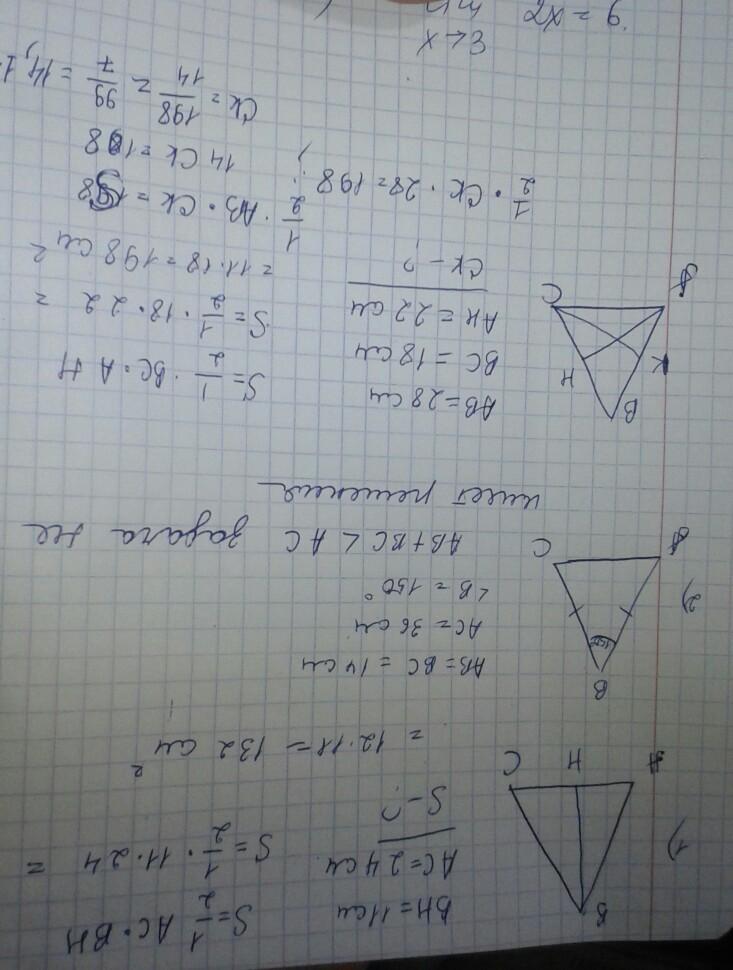 1)
B
A H C
BH = 11 см
AC = 24 см
S - ?
S = 1/2 AC · BH
S = 1/2 · 11 · 24 =
= 12 · 11 = 132 см²
2)
B
150°
A C
AB = BC = 14 см
AC = 36 см
∠B = 150°
AB + BC < AC задача не
имеет решения
B
K H
A C
AB = 28 см
BC = 18 см
AH = 22 см
CK - ?
S = 1/2 · BC · AH
S = 1/2 · 18 · 22 =
= 11 · 18 = 198 см²
1/2 · AB · CK = 198
1/2 · CK · 28 = 198
14 CK = 198
CK = 198/14 = 99/7 = 14,1